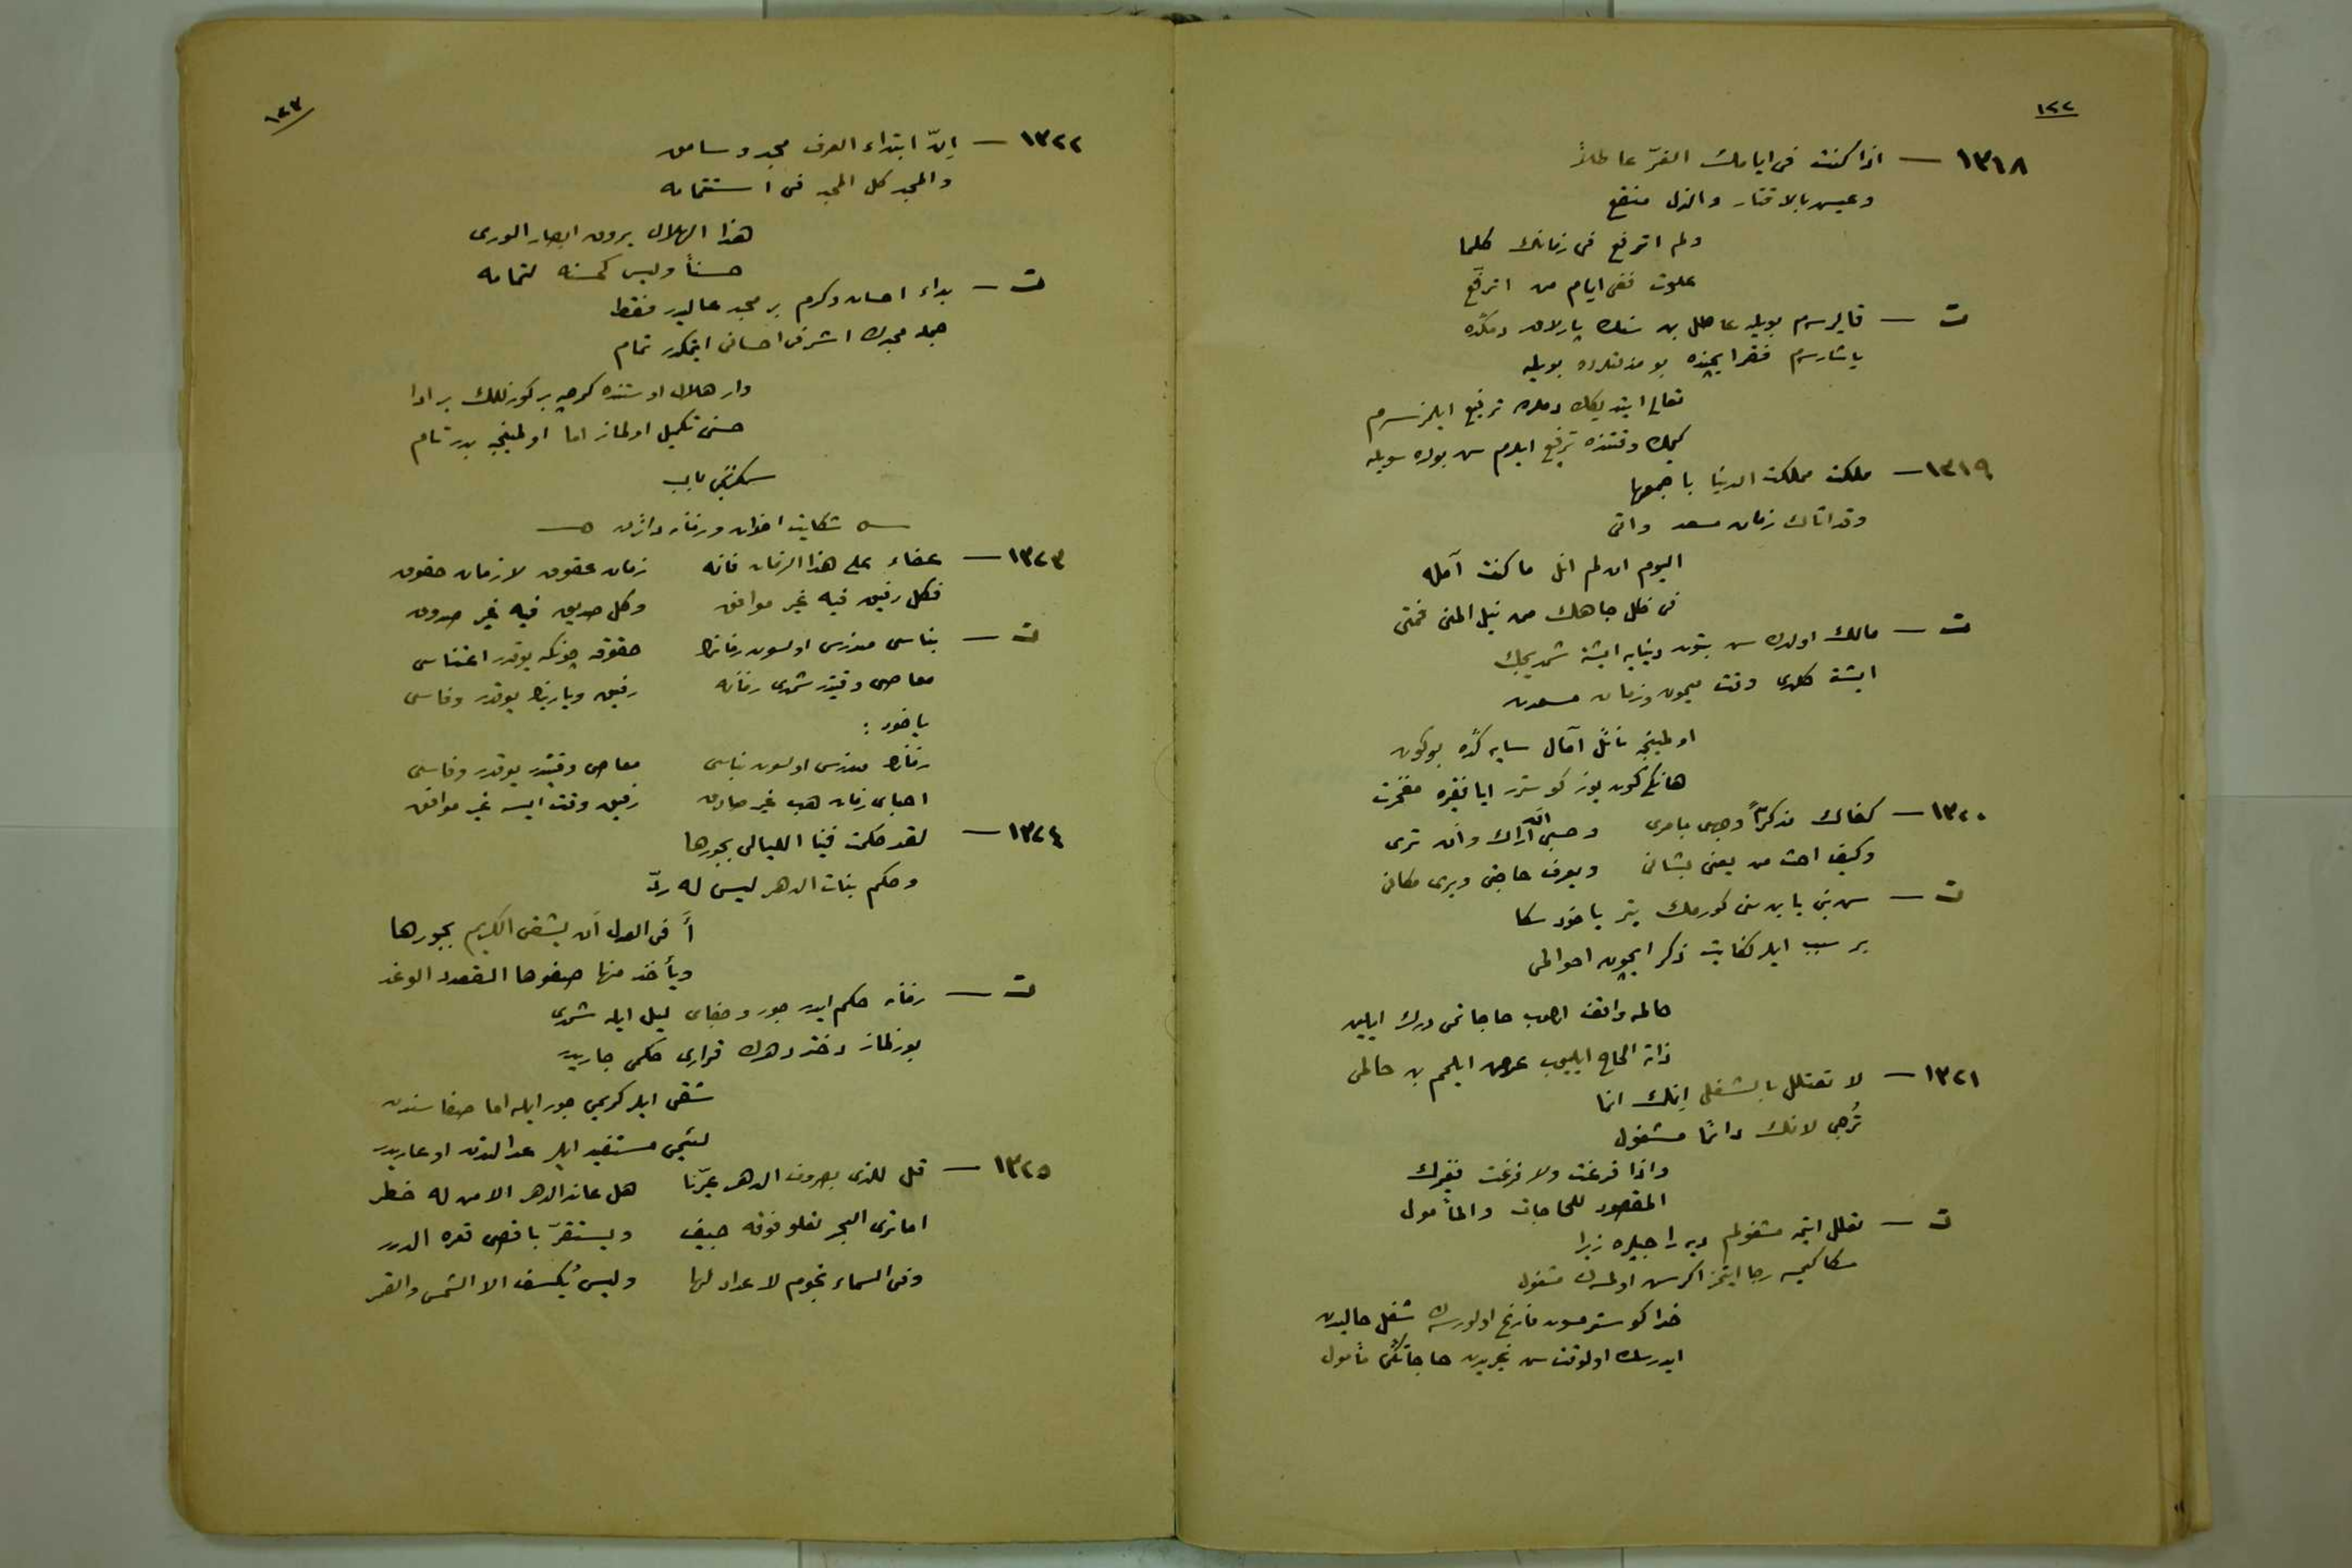 ١٢٢
١٣١٨ — اذا كنت فى ايامك الغرّ عاطلاً
وعيس بالاقتار والذل منقع
ولم اترفع فى زمانك كلما
علوت ففى ايام من اترفّع
ت — قاليرسم بويله عاطل بن سنك پارلاق دمكده
ياشارسم فقر ايچنده بو مذلتلرده بويله
تعالى ايتديكك دملره ترفيع ايلمزسم
كيمك وقتنده ترفع ايلرم سن بوده سويله
١٣١٩ — ملكت مملكت الدنيا باجمعها
وقد اتاك زمان مسعد واتى
اليوم ان لم انل ما كنت آمله
فى ظل جاهك من نيل المنى فمتى
ت — مالك اولدك سن بتون دنيايه ايشته شمديجك
ايشته كلدى وقت ميمون وزمان مسعدت
اولمينجه نائل آمال سايه كده بوكون
هانكى كون يوز كوسترر ايا فقيره مغفرت
١٣٢٠ — كفاك مذكراً وجهى بامرى وحسبى ان اراك وان ترى
وكيف احث من يعنى بشانى ويعرف حاجتى ويرى مكانى
ت — سن بنى يا بن سنى كورمك يتر ياخود سكا
بر سبب ايلر كفايت ذكر ايچون احوالمى
حالمه واقف اولوب حاجاتمى درك ايلين
ذاته الحاح ايليوب عرض ايلمم بن حالمى
١٣٢١ — لا تعتلل بالشغل إنك انما
تُرجى لانك دائمًا مشغول
واذا فرغت ولا فرغت فغيرك
المقصود للحاجات والمأمول
ت — تعلل ايتمه مشغولم ديه راجيلره زيرا
سكا كيمسه رجا ايتمز اكر سن اولمسه ك مشغول
خدا كوسترمسون فارغ اولورسه ك شغل حاليدن
ايدرسك اولوقت سن غيريدن حاجاتكى مأمول
١٢٣
١٣٢٢ — إنّ ابتداء العرف مجد وسامق
والمجد كل المجد فى استتمامه
هذا الهلال يروق ابصار الورى
حسناً وليس كحسنه لتمامه
ت — بداء احسان وكرم بر مجد عاليدر فقط
جمله مجدك اشرفى احسانى ايتمكدر تمام
وار هلال اوستنده كرچه بر كوزللك بر ادا
حسنى تكميل اولماز اما اولمينجه بدر تام
سكزنجى باب
شكايت اخوان وزمان دائر
١٣٢٣ — عفاء على هذا الزمان فانه زمان عقوق لا زمان حقوق
فكل رفيق فيه غير موافق وكل صديق فيه غير صدوق
ت — بناسى مندرس اولسون زمانك حقوقه چونكه يوقدر اعتناسى
معاصى وقتيدر شمدى زمانه رفيق ويارينك يوقدر وفاسى
ياخود :
زمانك مندرس اولسون بناسى معاصى وقتيدر يوقدر وفاسى
احباى زمان هپ غير صادق رفيق وقت ايسه غير موافق
١٣٢٤ — لقد حكمت فينا الليالى بجورها
وحكم بنات الدهر ليس له ردّ
أفى العدل أن يشقى الكريم بجورها
ويأخذ منها صفوها القعدد الوغد
ت — زمانه حكم ايدر جور وجفاى ليل ايله شمدى
بوزلماز دختر دهرك قرارى حكمى جاريدر
شقى ايلر كريمى جور ايله اما صفاسندن
لئيمى مستفيد ايلر عدالتدن او عاريدر
١٣٢٥ — قل للذى بصروف الدهر عيّرنا هل عاند الدهر الا من له خطر
اما ترى البحر تعلو فوقه جيف ويستقرّ باقصى قعره الدرر
وفى السماء نجوم لا عداد لها وليس يُكسف الا الشمس والقمر